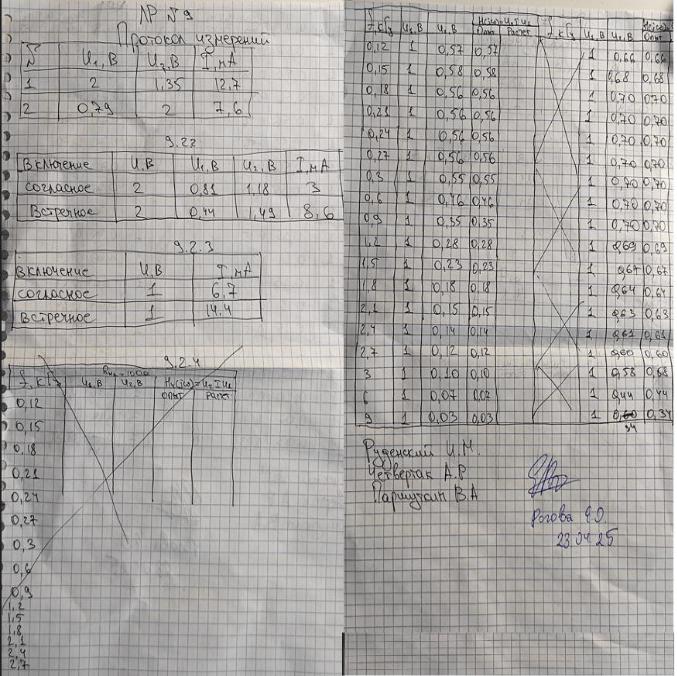 ЛР №9
Протокол измерений
№ U₁, В U₂, В I, мА
1 2 1,35 12,7
2 0,79 2 7,6
9.2.2
Включение U, В U₁, В U₂, В I, мА
Согласное 2 0,81 1,18 3
Встречное 2 0,44 1,49 8,6
9.2.3
Включение U, В I, мА
согласное 1 6,7
Встречное 1 14.4
9.2.4
f, кГц U₁, В U₂, В Опыт Расчет
0,12
0,15
0,18
0,21
0,24
0,27
0,3
0,6
0,9
1,2
1,5
1,8
2,1
2,4
2,7
f, кГц U₁, В U₂, В Опыт Расчет f, кГц U₁, В U₂, В Опыт
0,12 1 0,57 0,57 1 0,66 0,66
0,15 1 0,58 0,58 1 0,68 0,68
0,18 1 0,56 0,56 1 0,70 0,70
0,21 1 0,56 0,56 1 0,70 0,70
0,24 1 0,56 0,56 1 0,70 0,70
0,27 1 0,56 0,56 1 0,70 0,70
0,3 1 0,55 0,55 1 0,70 0,70
0,6 1 0,46 0,46 1 0,70 0,70
0,9 1 0,35 0,35 1 0,70 0,70
1,2 1 0,28 0,28 1 0,69 0,69
1,5 1 0,23 0,23 1 0,67 0,67
1,8 1 0,18 0,18 1 0,64 0,64
2,1 1 0,15 0,15 1 0,63 0,63
2,4 1 0,14 0,14 1 0,61 0,61
2,7 1 0,12 0,12 1 0,60 0,60
3 1 0,10 0,10 1 0,58 0,58
6 1 0,07 0,07 1 0,44 0,44
9 1 0,03 0,03 1 0,60 0,34
34
Руденский И.М.
Четвертак А.Р
Паршуткин В.А
Рогова Е.О.
23.04.25